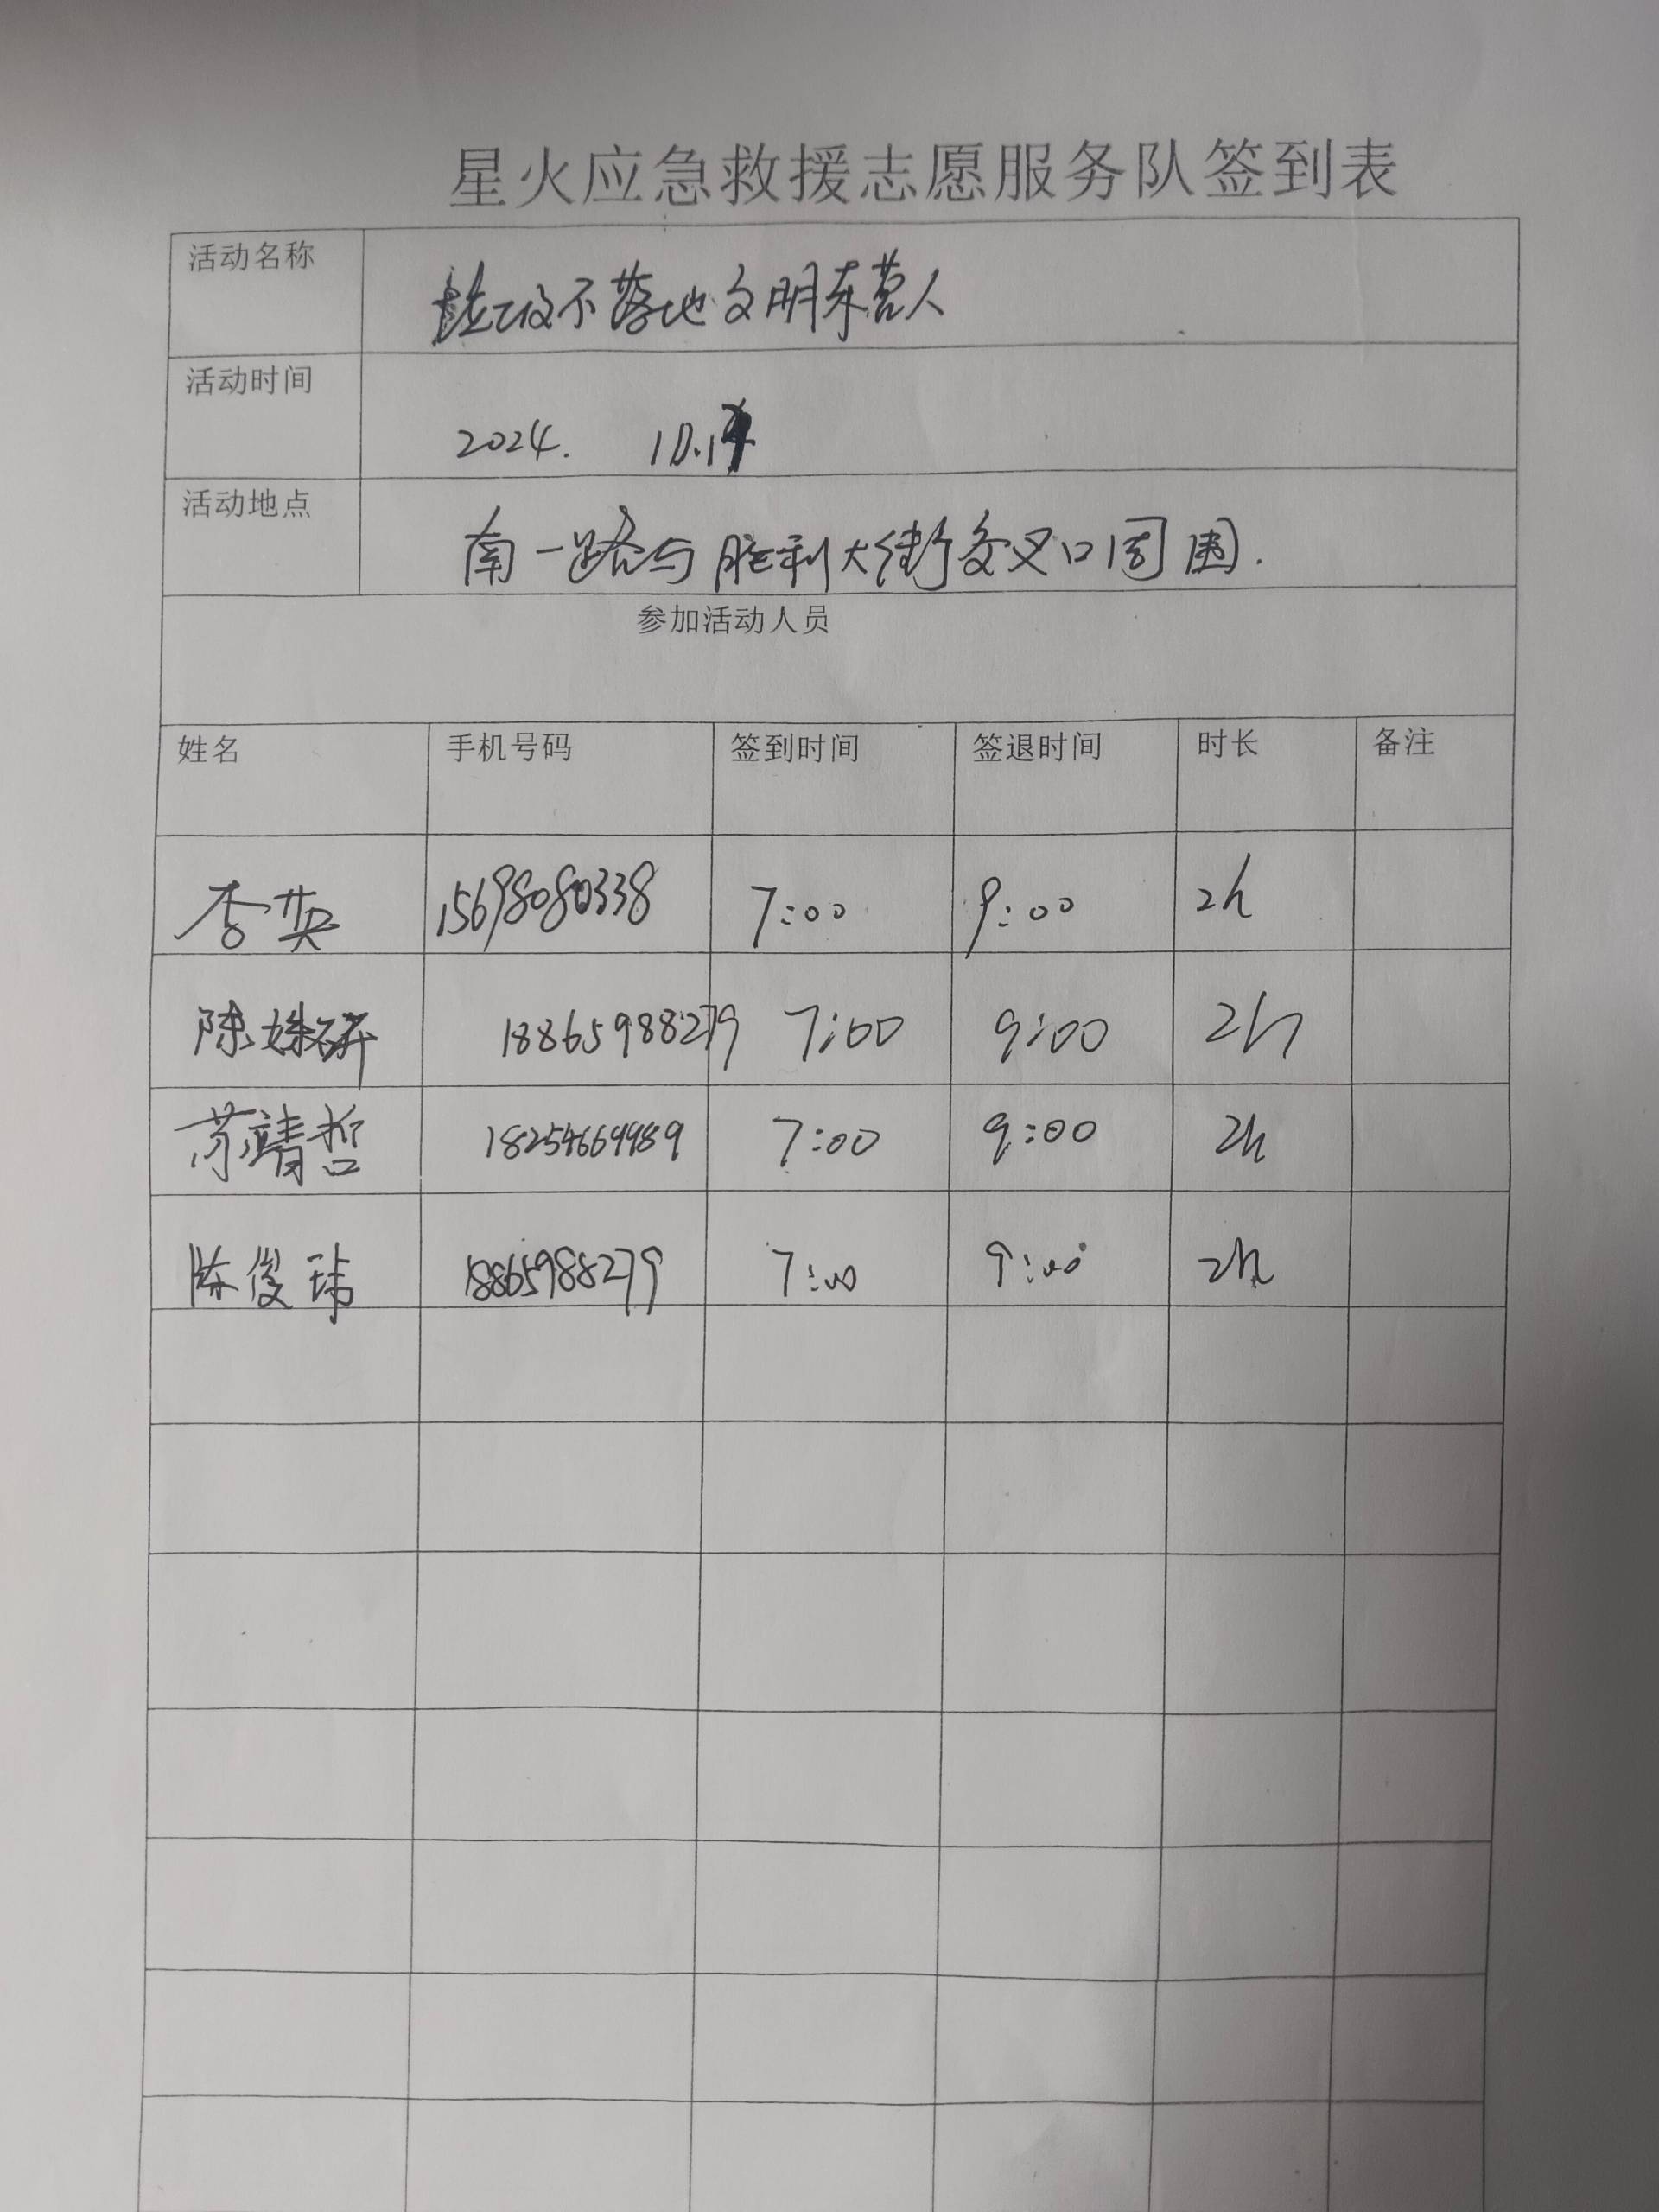 星火应急救援志愿服务队签到表
活动名称 垃圾不落地文明东营人
活动时间 2024.
活动地点 南一路与胜利大街交叉口周围.
参加活动人员
姓名 手机号码 签到时间 签退时间 时长 备注
李英 15698080338 7:00 9:00 2h
陈姝妍 18865988279 7:00 9:00 2h
苏靖哲 7:00 9:00 2h
陈俊玮 18865988279 7:00 9:00 2h